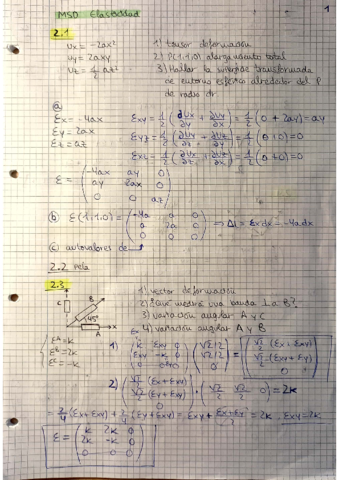 MSD Elasticidad
1
2.1
Ux = -2ax²
Uy = 2axy
Uz = 1/2 az²
1) tensor deformación
2) P(1,1,0) alargamiento total
3) Hallar la superficie transformada
de entorno esférico alrededor del P
de radio dr
(a)
Ex = -4ax
Ey = 2ax
Ez = az
Exy = 1/2 (∂Ux/∂y + ∂Uy/∂x) = 1/2 (0 + 2ay) = ay
Eyz = 1/2 (∂Uy/∂z + ∂Uz/∂y) = 1/2 (0+0) = 0
Exz = 1/2 (∂Ux/∂z + ∂Uz/∂x) = 1/2 (0+0) = 0
E = (-4ax ay 0
ay 2ax 0
0 0 az)
(b) E(1,1,0) = (-4a a 0
a 2a 0
0 0 0) ⇒ Δl = Ex dx = -4a dx
(c) autovalores de
2.2
2.3
C
B
45°
A
x
1) vector deformación
2) ¿Qué medirá una banda ⊥ a B?
3) variación angular A y C
4) variación angular A y B
E^A = k
E^B = 2k
E^C = -k
1) (k Exy 0
Exy -k 0
0 0 0) (√2/2
√2/2
0) = (√2/2 (Ex + Exy)
√2/2 (Exy + Ey)
0)
2) (√2/2 (Ex + Exy)
√2/2 (Exy + Ey)
0) · (√2/2 √2/2 0) = 2k
= 2/4 (Ex+Exy) + 2/4 (Ey+Exy) = Exy + (Ex+Ey)/2 = 2k Exy = 2k
E = (k 2k 0
2k -k 0
0 0 0)